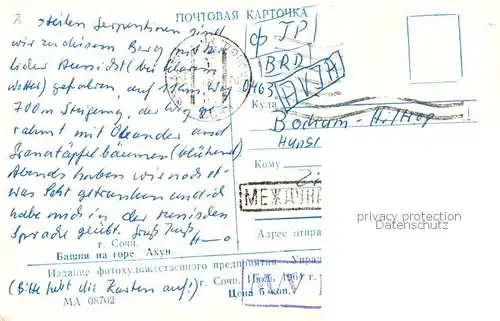 ПОЧТОВАЯ КАРТОЧКА
steilen Serpentinen sind
wir zu diesem Berg mit
licher Aussicht (bei klarem
Wetter) gefahren, auf 11 km Weg
700m Steigung, der Weg
rahmt mit Oleander und
Granatäpfelbäumen (blühend)
Abends haben wir noch et-
was Sekt getrunken und ich
habe mich in der russischen
Sprache geübt. Gruß Kuß
г. Сочи.
Башня на горе Ахун.
BRD
0463
Куда
Bochum-Hiltrop
Кому
МЕЖДУНА
Адрес отпра
privacy protection
Datenschutz
Издание фотохудожественного предприятия Управ
г. Сочи. Июль 1961 г.
(Bitte hebt die Karten auf!)
Цена 6 коп.
МА 08702